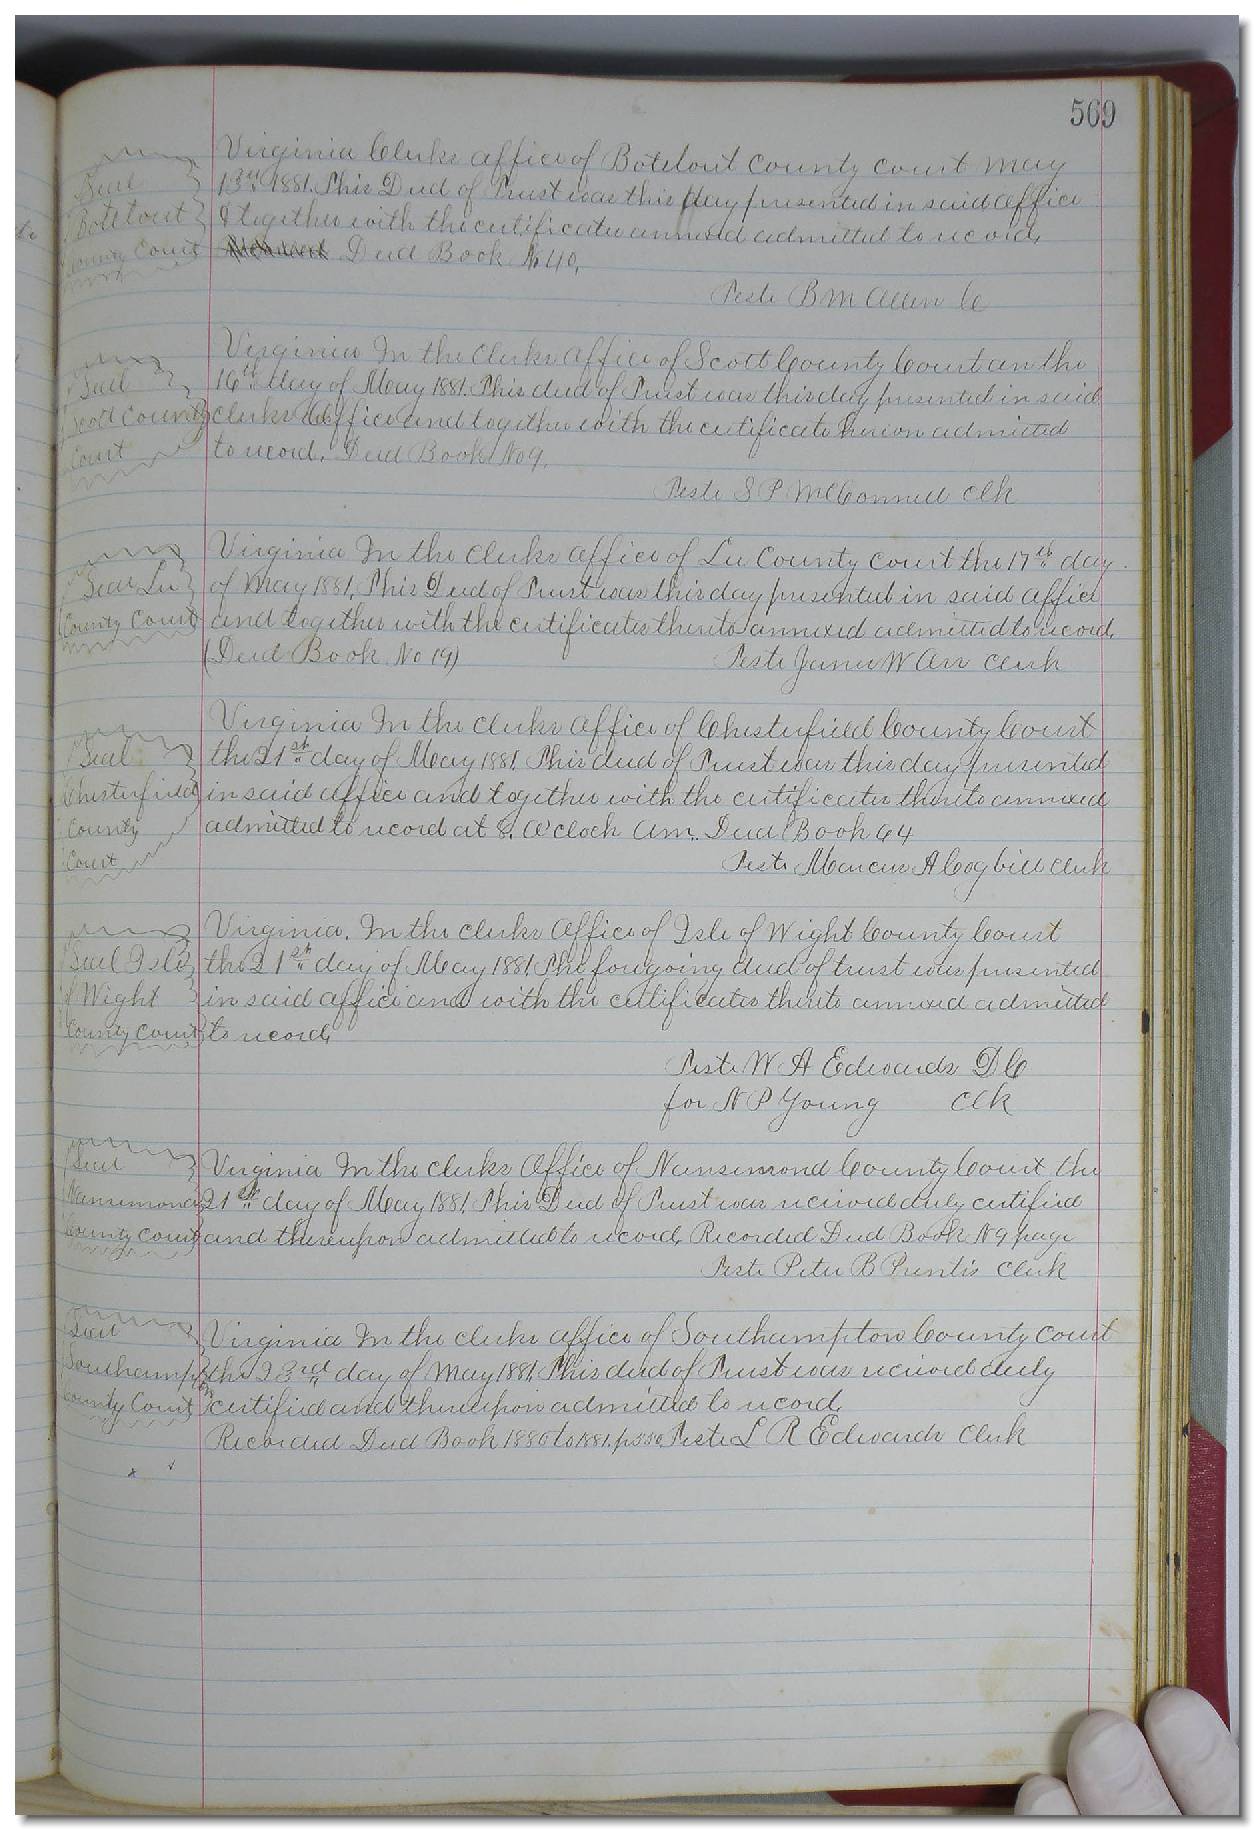 569
Virginia Clerks office of Botetout County court May
Seal
13th 1881. This Deed of Trust was this day presented in said office
Botetout
& together with the certificates annexed admitted to record,
County Court
Deed Book No 40,
Teste B M Allen C
Virginia In the Clerks Office of Scott County Court on the
Seal
16th day of May 1881. This deed of Trust was this day presented in said
Scott County
clerks office and together with the certificate hereon admitted
Court
to record, Deed Book No 9.
Teste S P McConnell Clk
Virginia In the Clerks Office of Lee County court the 17th day
Seal Lee
of May 1881, This Deed of Trust was this day presented in said office
County Court
and together with the certificates thereto annexed admitted to record,
(Deed Book No 19)
Teste James W Orr Clerk
Virginia In the clerks Office of Chesterfield County Court
Seal
the 21st day of May 1881. This deed of Trust was this day presented
Chesterfield
in said office and together with the certificates thereto annexed
County
admitted to record at 8. O'clock Am. Deed Book 64
Court
Teste Marcus A Cogbill Clerk
Virginia. In the clerks Office of Isle of Wight County Court
Seal Isle
the 21st day of May 1881 The foregoing deed of trust was presented
of Wight
in said office and with the certificates thereto annexed admitted
County Court
to record,
Teste W A Edwards D C
for N P Young Clk
Seal
Virginia In the clerks Office of Nansemond County Court the
Nansemond
21st day of May 1881. This Deed of Trust was received duly certified
County Court
and thereupon admitted to record, Recorded Deed Book N 9 page
Teste Peter B Prentis Clerk
Seal
Virginia In the clerks office of Southampton County court
Southampton
the 23rd day of May 1881, This deed of Trust was received duly
County Court
certified and thereupon admitted to record,
Recorded Deed Book 1880 to 1881, Teste L R Edwards Clerk